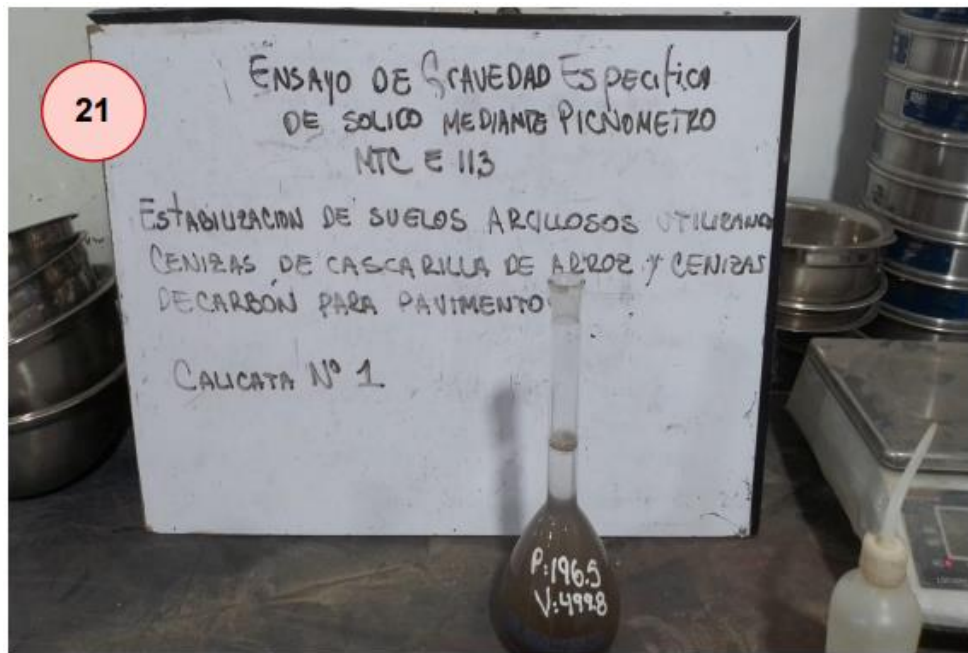 21
ENSAYO DE GRAVEDAD ESPECIFICA
DE SOLICO MEDIANTE PICNOMETRO
MTC E 113
ESTABILIZACION DE SUELOS ARCILLOSOS UTILIZAND
CENIZAS DE CASCARILLA DE ARROZ Y CENIZAS
DE CARBÓN PARA PAVIMENTO
CALICATA Nº 1
P:196.5
V:499.8